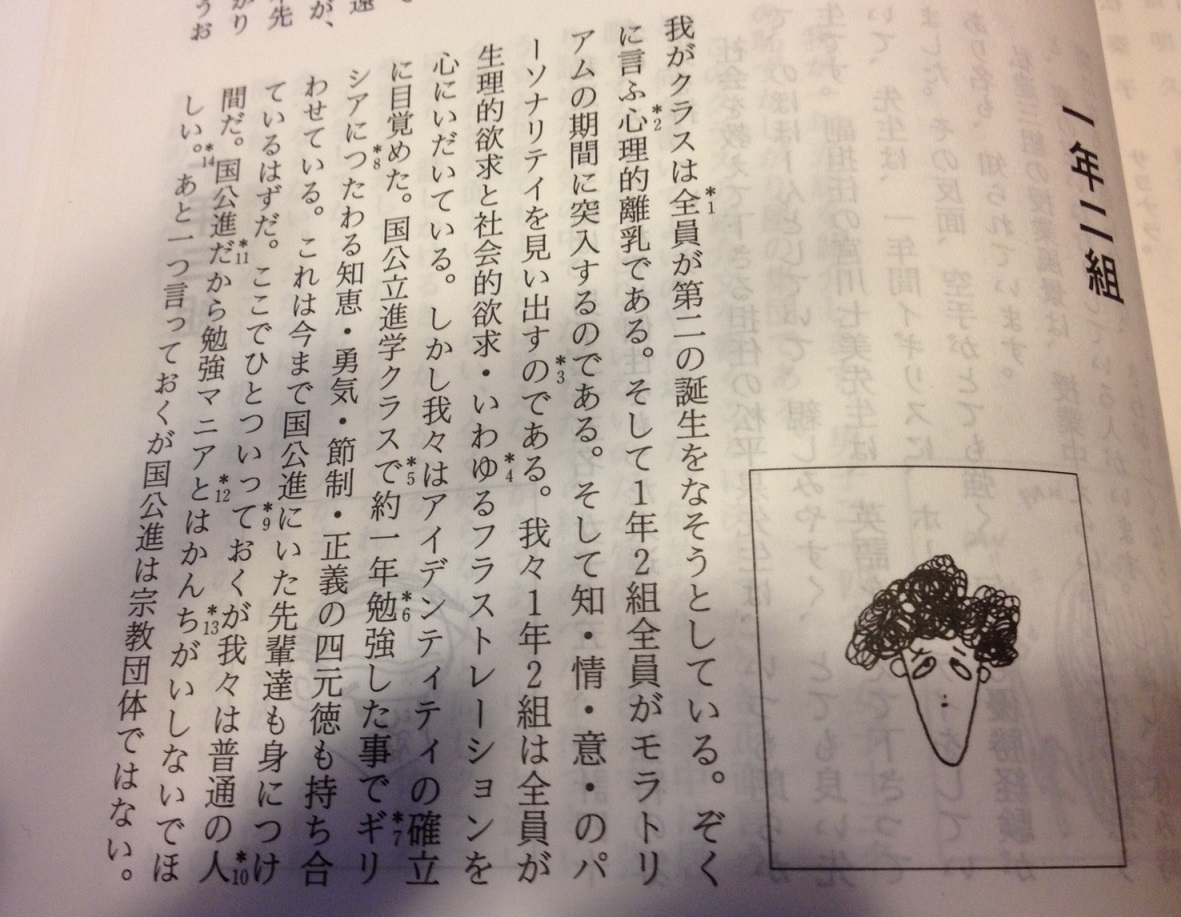 一年二組
我がクラスは*1全員が第二の誕生をなそうとしている。ぞく
に言ふ*2心理的離乳である。そして1年2組全員がモラトリ
アムの期間に突入するのである。そして知・情・意・のパ
ーソナリティを見い出すの*3である。我々1年2組は全員が
生理的欲求と社会的欲求・いわゆる*4フラストレーションを
心にいだいている。しかし我々はアイデンティティの確立
に目覚めた。国公立進学クラスで*5約一年*6勉強した事で*7ギリ
シアに*8つたわる知恵・勇気・節制・正義の四元徳も持ち合
わせている。これは今まで国公進にいた先輩達も身につけ
ているはずだ。ここでひとついって*9おくが我々は普通の*10人
間だ。国公進*11だから勉強マニア*12とはかん*13ちがいしないでほ
しい。*14あと一つ言っておくが国公進は宗教団体ではない。